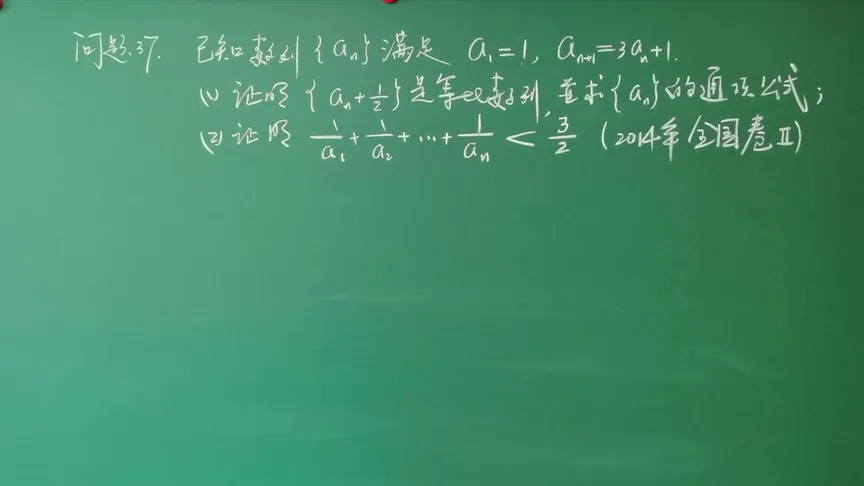 问题37. 已知数列{aₙ}满足 a₁=1, aₙ₊₁=3aₙ+1.
(1) 证明{aₙ+1/2}是等比数列,并求{aₙ}的通项公式;
(2) 证明 1/a₁+1/a₂+…+1/aₙ<3/2 (2014年全国卷Ⅱ)